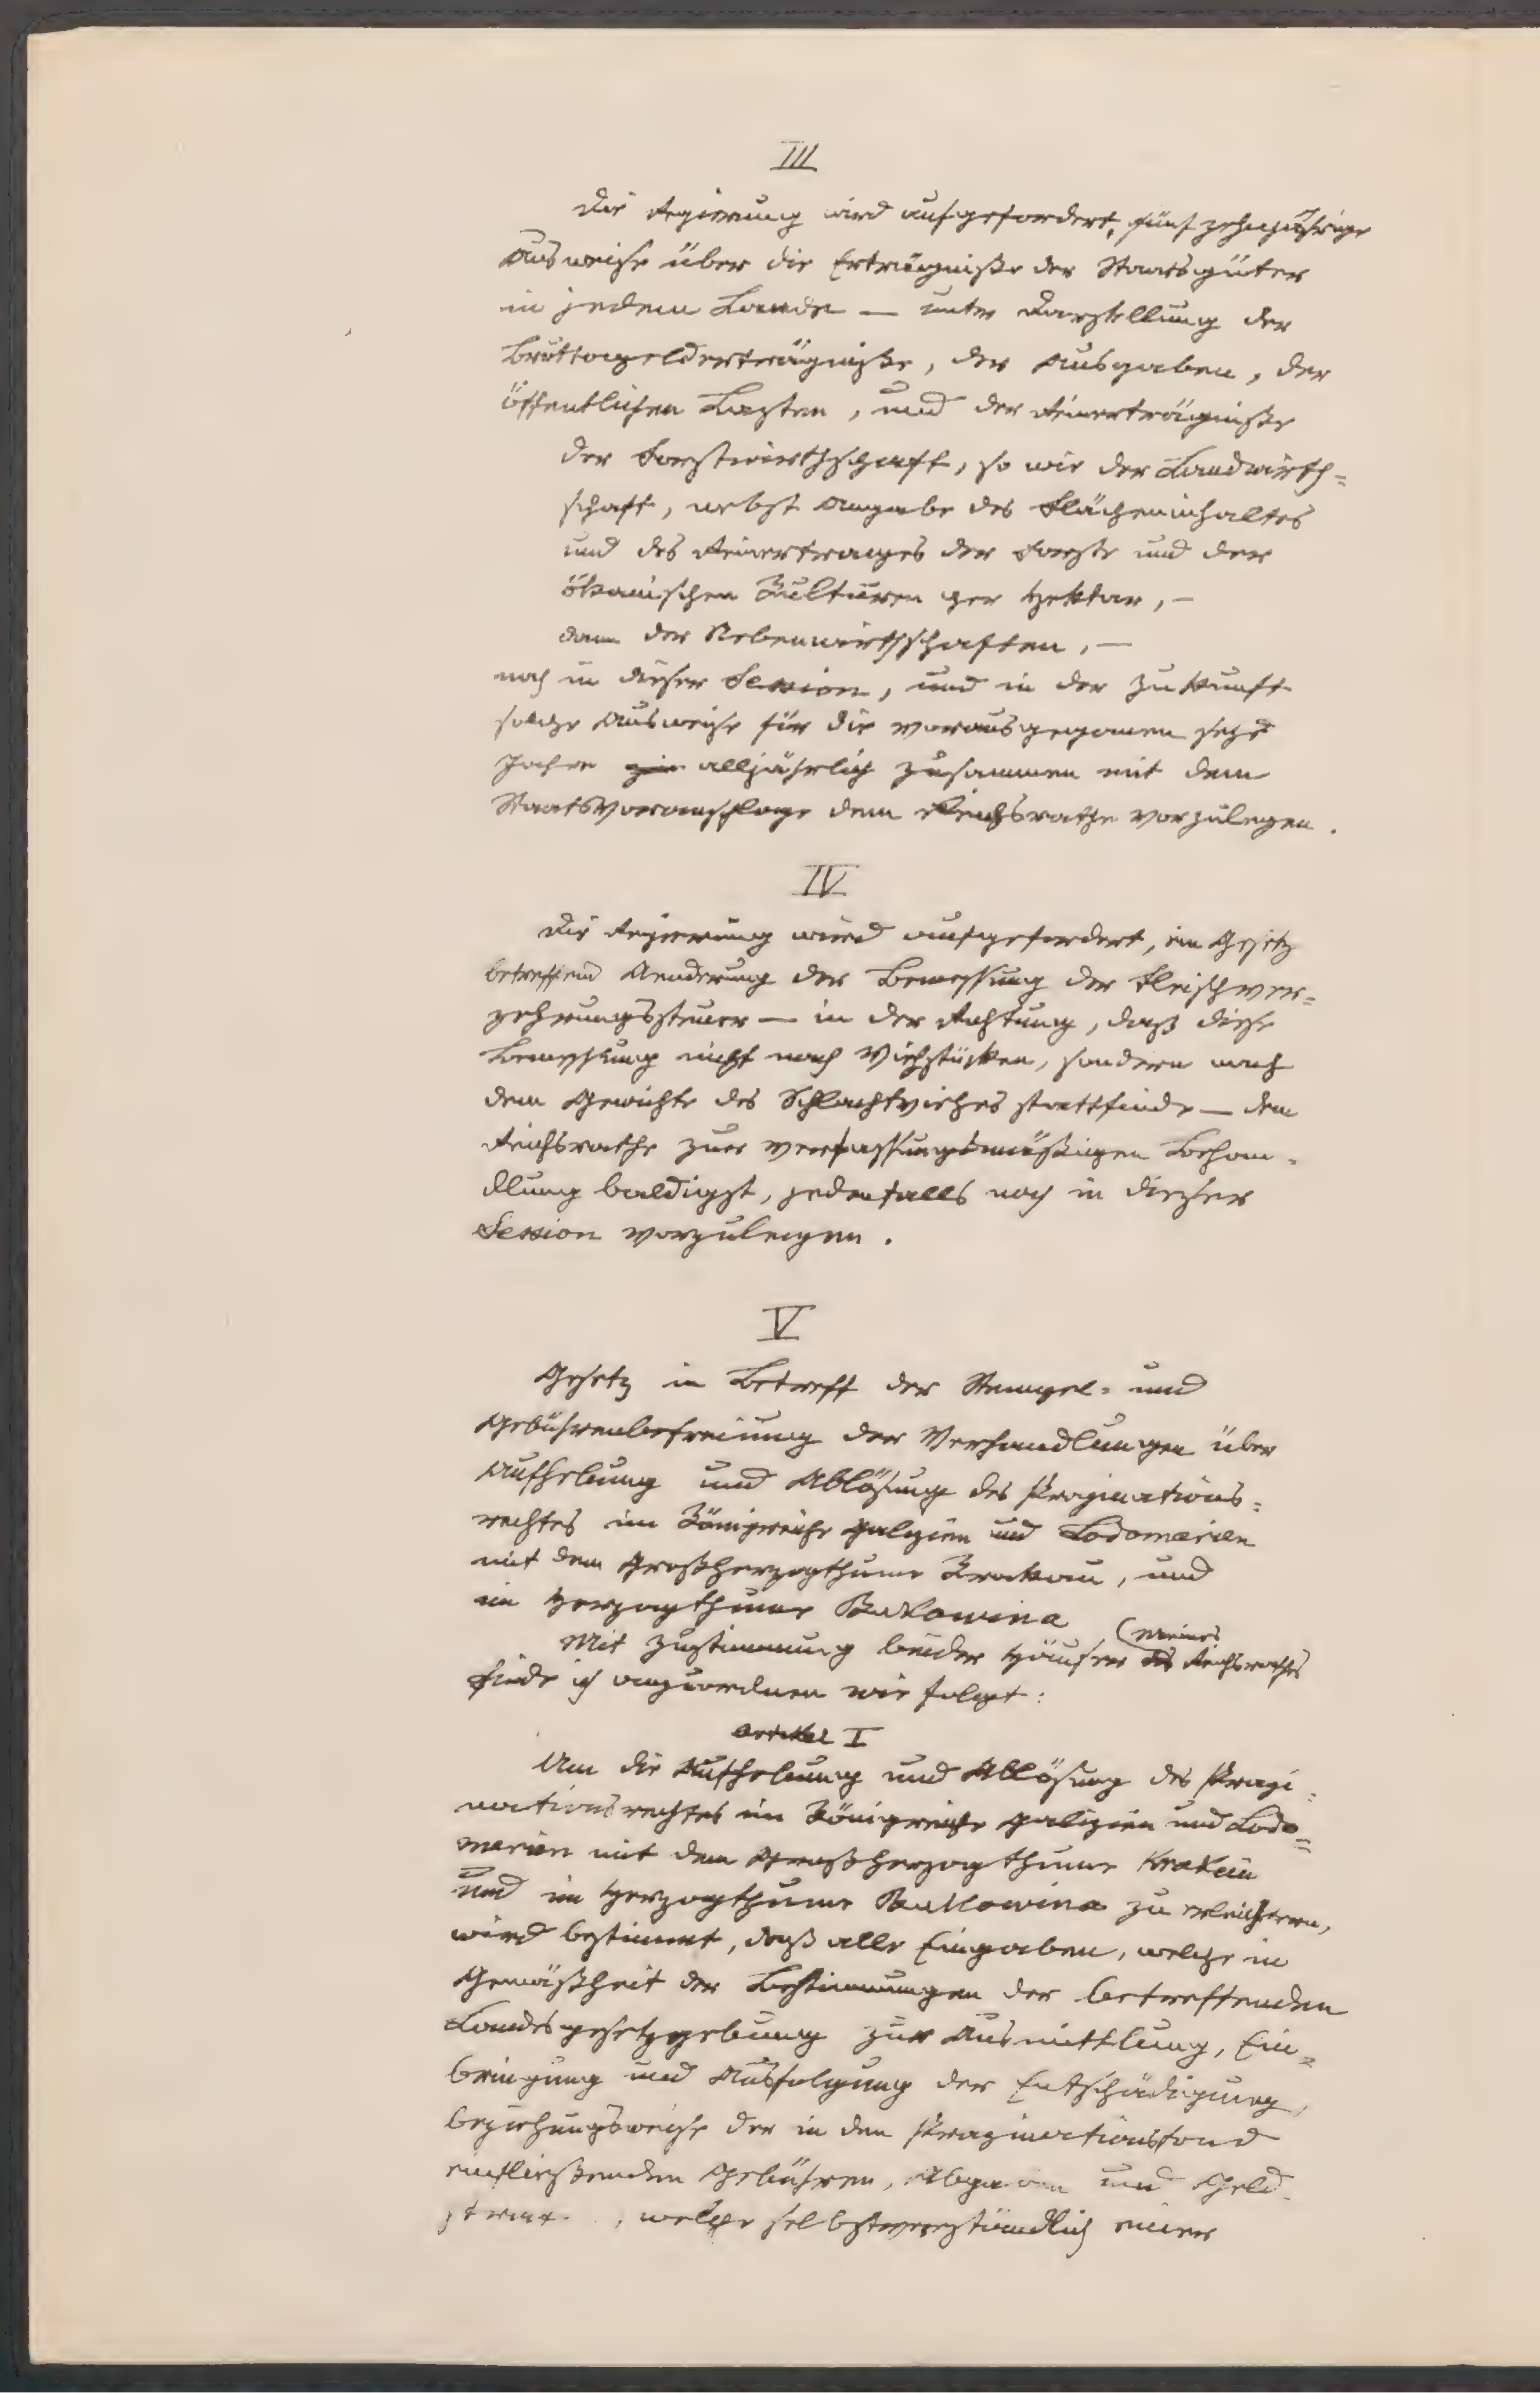 III
Die Regierung wird aufgefordert, fünfzehnjährige
Ausweise über die Erträgniße der Staatsgüter
in jedem Lande — unter Darstellung der
Bruttogelderträgniße, der Ausgaben, der
öffentlichen Lasten, und der Reinerträgniße
der Forstwirthschaft, so wie der Landwirth=
schaft, nebst Angabe des Flächeninhaltes
und des Reinertrages der Forste und der
ökonischen Kulturen per Hektar, —
dann der Nebenwirthschaften, —
noch in dieser Session, und in der Zukunft
solche Ausweise für die vorausgegangenen sechs
Jahre alljährlich zusammen mit dem
Staatsvoranschlage dem Reichsrathe vorzulegen.
IV
Die Regierung wird aufgefordert, ein Gesetz
betreffend Aenderung der Bemessung der Fleischver=
zehrungssteuer — in der Richtung, daß diese
Bemessung nicht nach Viehstücken, sondern nach
dem Gewichte des Schlachtviehes stattfinde — dem
Reichsrathe zur verfassungsmäßigen Behan=
dlung baldigst, jedenfalls noch in dieser
Session vorzulegen.
V
Gesetz in Betreff der Stempel= und
Gebührenbefreiung der Verhandlungen über
Aufhebung und Ablösung des Propinations=
rechtes im Königreiche Galizien und Lodomerien
mit dem Großherzogthume Krakau, und
im Herzogthume Bukowina
Mit Zustimmung beider Häuser (meines des Reichsrathes
finde ich anzuordnen wie folgt:
Artikel I
Um die Aufhebung und Ablösung des Propi=
nationsrechtes im Königreiche Galizien und Lodo=
merien mit dem Großherzogthume Krakau
und im Herzogthume Bukowina zu erleichtern,
wird bestimmt, daß alle Eingaben, welche in
Gemäßheit der Bestimmungen der betreffenden
Landesgesetzgebung zur Ausmittlung, Ein=
bringung und Ausfolgung der Entschädigung,
beziehungsweise der in den Propinationsfond
einfließenden Gebühren, Abgaben und Geld
, welche selbstverständlich einer